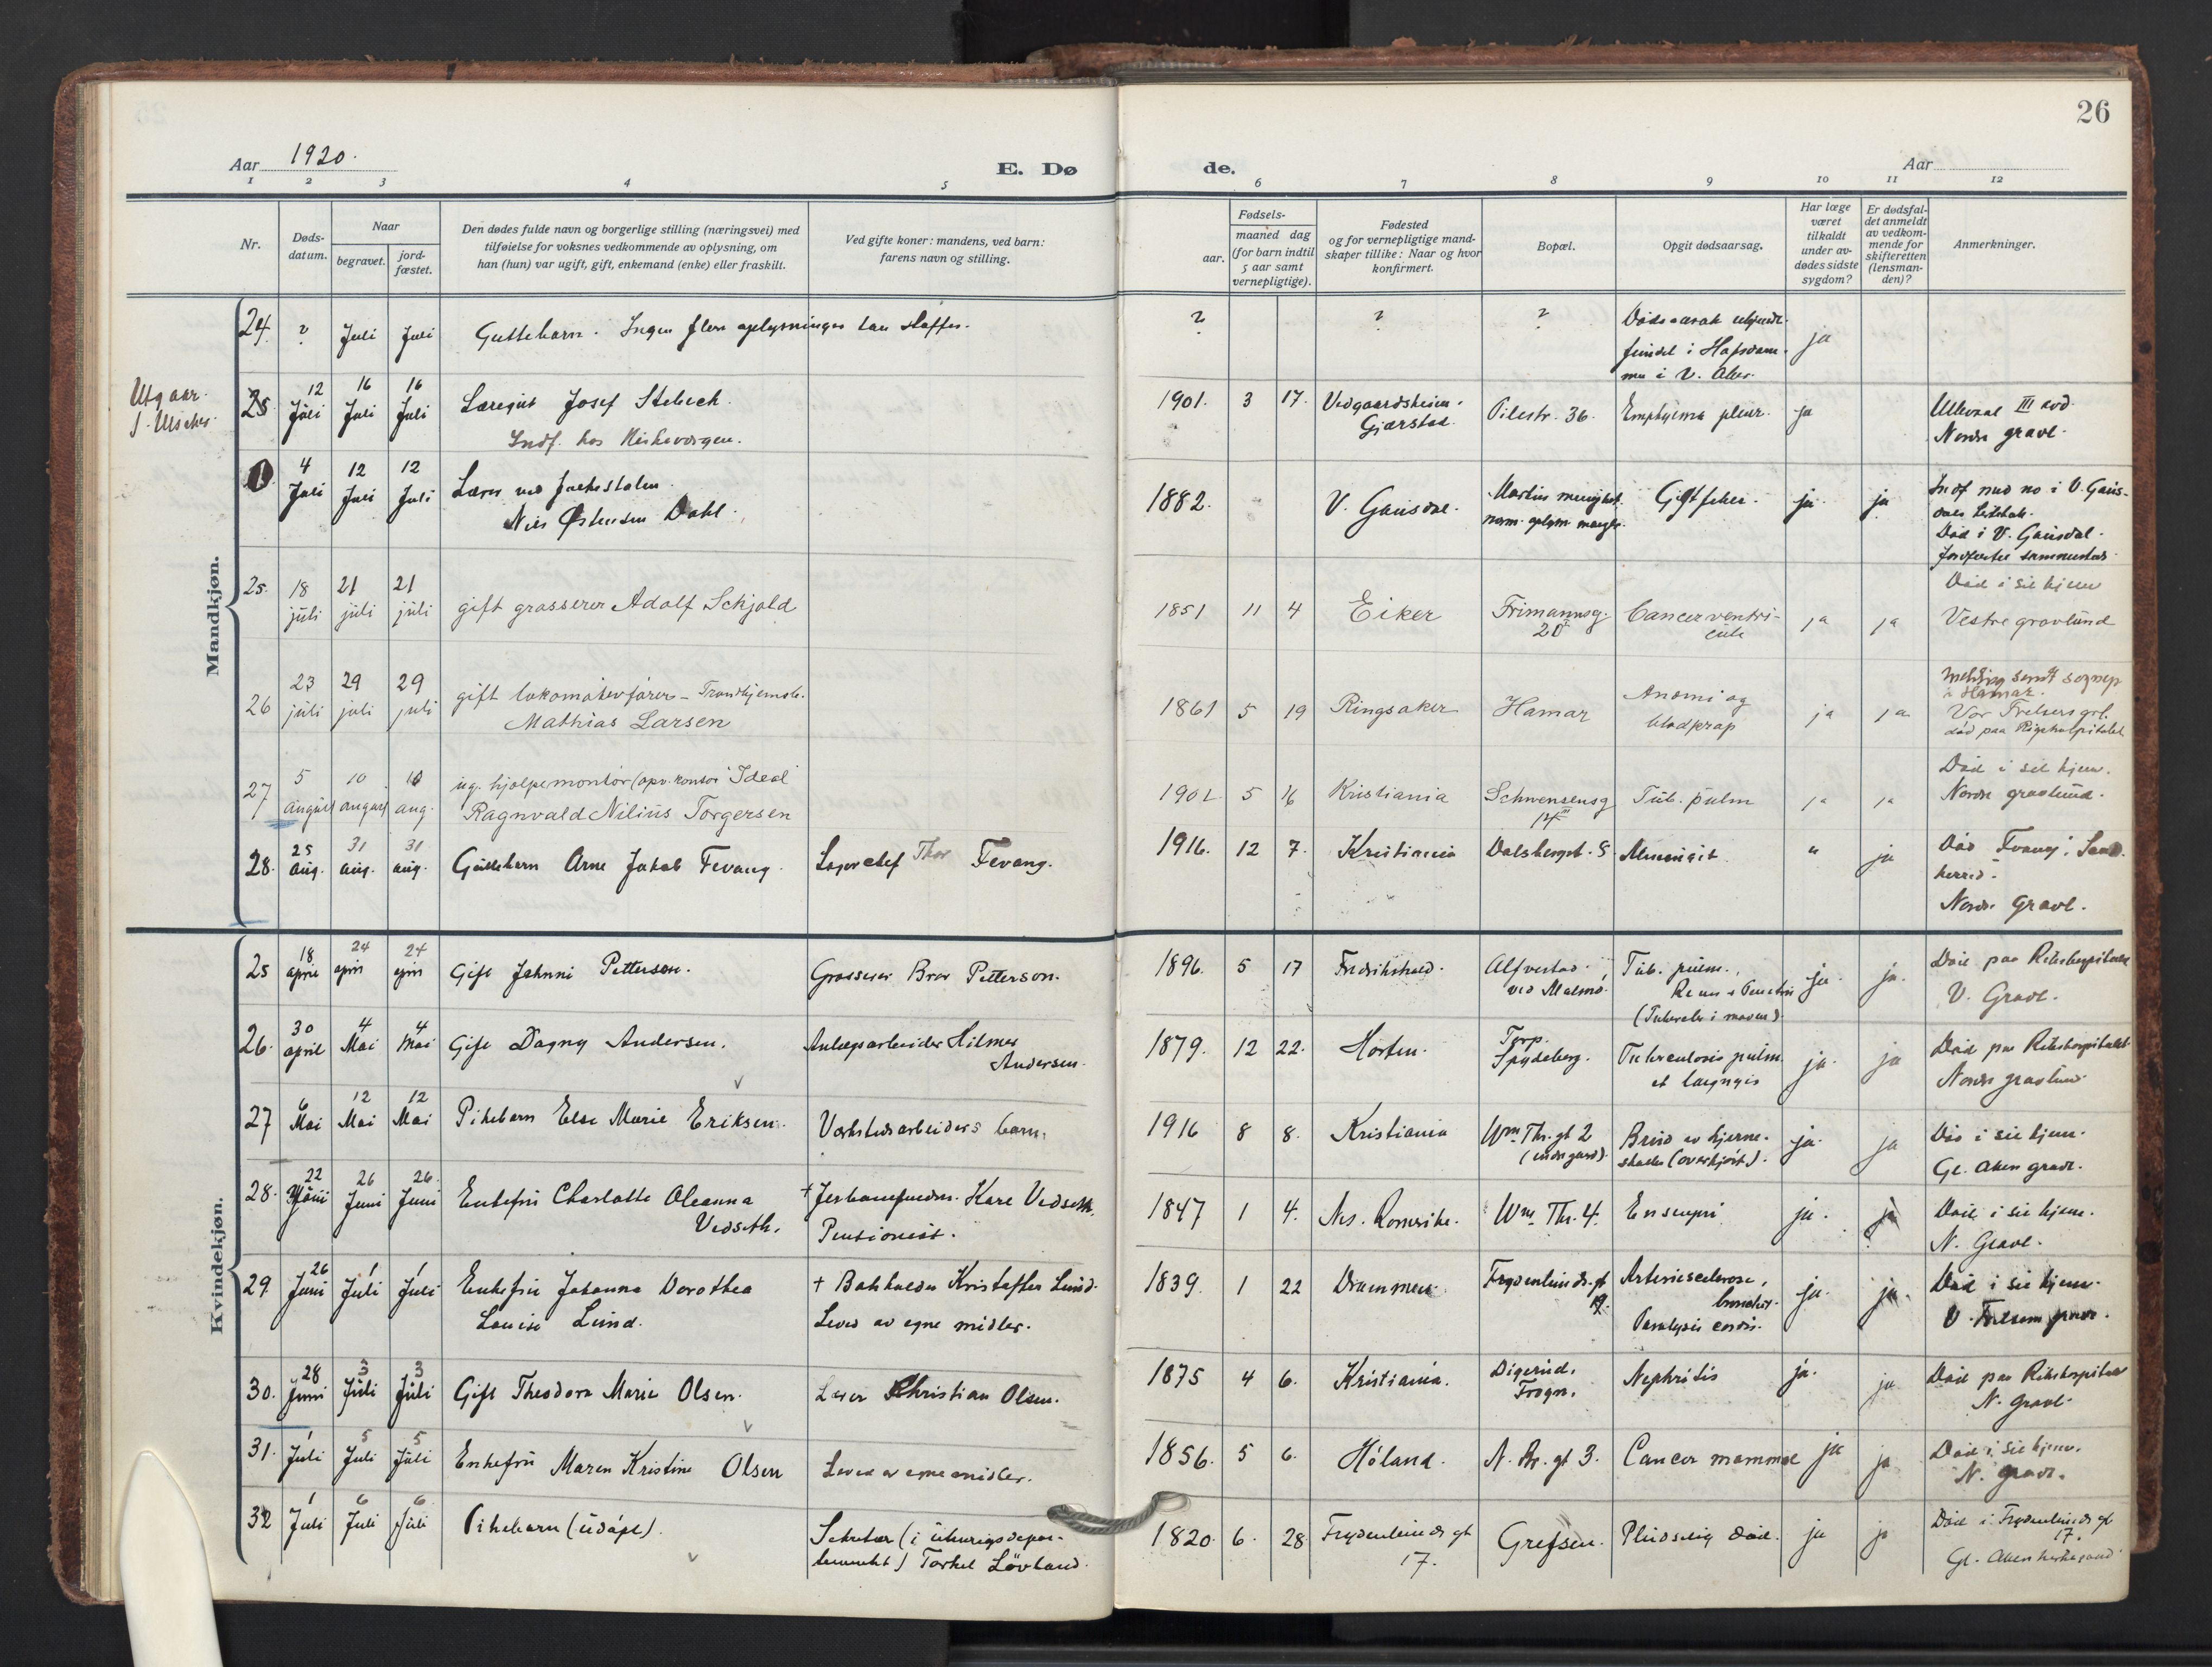 26
Aar 1920.
E. Dø
de.
Aar
1 2 3 4 5 6 7 8 9 10 11 12
Nr.
Døds-
datum.
Naar
begravet.
jord-
fæstet.
Den dødes fulde navn og borgerlige stilling (næringsvei) med
tilføielse for voksnes vedkommende av oplysning, om
han (hun) var ugift, gift, enkemand (enke) eller fraskilt.
Ved gifte koner: mandens, ved barn:
farens navn og stilling.
Fødsels-
aar.
maaned dag
(for barn indtil
5 aar samt
vernepligtige).
Fødested
og for vernepligtige mand-
skaper tillike: Naar og hvor
konfirmert.
Bopæl.
Opgit dødsaarsag.
Har læge
været
tilkaldt
under av-
dødes sidste
sygdom?
Er dødsfal-
det anmeldt
av vedkom-
mende for
skifteretten
(lensman-
den)?
Anmerkninger.
Mandkjøn.
24. ? Juli Juli Guttebarn. Ingen flere oplysninger kan skaffes. ? ? ? Dødsaarsak ukjendt.
fundet i
i V. Aker. ja
Utgaar.
25. 12 Juli 16 Juli 16 Juli Læregut Josef Stebech.
Indf. hos
1901. 3 17. Vedgaardsheim.
Gjærstad. Pilestr. 36. Empyema pleur. ja Ullevaal III avd.
Nordre gravl.
4 Juli 12 Juli 12 Juli Lærer ved
Nils Østensen Dahl.
1882. V. Gausdal. ja ja Indf. med no i V. Gaus-
Død i V. Gausdal.
Jordfestet sammesteds.
25. 18 juli 21 juli 21 juli gift grosserer Adolf Schjold 1851 11 4 Eiker Frimannsg.
20 Cancer ventri-
culi ja ja Død i sit hjem
Vestre gravlund
26 23 juli 29 juli 29 juli gift lokomotivfører - Trondhjemsb.
Mathias Larsen 1861 5 19 Ringsaker Hamar Anæmi og
blodprop ja ja melding sendt sognep
i Hamar.
Vor Frelsers grl.
død paa Rigshospitalet
27 5 august 10 august 10 aug. ug. hjelpemontør (opv. kontor "Ideal"
Ragnvald Nilius Torgersen 1901 5 16 Kristiania Schwensensg
14 III Tub. pulm ja ja Død i sit hjem.
Nordre gravlund.
28. 25 aug. 31 aug. 31 aug. Guttebarn Arne Jakob Fevang. Lagerchef Thor Fevang. 1916. 12 7. Kristiania Dalsbergst. 8 Meningit. " ja Død Fevang i Sande-
herred.
Nordre Gravl.
Kvindekjøn.
25 18 april 24 april 24 april Gift Jahnni Petterson. Grosserer Bror Petterson. 1896. 5 17 Fredrikshald. Alfvestad.
ved Malmø. Tub. pulm.,
(Tuberk. i maven). ja. ja. Død paa Rikshospitalet
V. Gravl.
26. 30 april 4 Mai 4 Mai Gift Dagny Andersen. Anlægsarbeider Hilmer
Andersen. 1879. 12 22. Horten. Torp.
Spydeberg. Tuberculosis pulm.
et laryngis ja. ja Død paa Rikshospitalet
Nordre gravlund
27 6 Mai 12 Mai 12 Mai Pikebarn Else Marie Eriksen. Verkstedsarbeiders barn. 1916 8 8. Kristiania Wm Thr. gt 2
(indre gaard). Brud av hjerne-
skallen (overkjørt). ja. ja Død i sit hjem.
Gl. Aker gravl.
28. 22 Juni 26 Juni 26. Juni Enkefru Charlotte Oleanna
Vedseth. † Jernbaneformd. Kare Vedseth.
Pensionist. 1847 1 4. Nes. Romerike. Wm Thr. 4. ja. ja Død i sit hjem.
N. Gravl.
29. 26 Juni 1 Juli 1 Juli Enkefru Johanna Dorothea
Louise Lund. † Bokholder Kristoffer Lund.
Leved av egne midler. 1839. 1 22 Drammen. Frydenlunds. gt
19. Arteriosclerose,
bronchit.
Paralysis cordis. ja. ja. Død i sit hjem.
V. Frelsers gravl.
30. 28 Juni 3 Juli 3 Juli Gift Theodora Marie Olsen. Lærer Christian Olsen. 1875 4 6. Kristiania. Digerud.
Frogn. Nephritis ja. ja Død paa Rikshospitalet
N. gravl.
31. 1 Juli 5 Juli 5 Juli Enkefru Maren Kristine Olsen Leved av egne midler. 1856. 5 6. Høland. N. Pr. gt 3. Cancer mammae ja ja Død i sit hjem.
N. gravl.
32 1 Juli 6 Juli 6 Juli Pikebarn (udøpt). Sekretær (i utenrigsdepar-
tementet) Torkel Løvland. 1820. 6. 28 Frydenlunds gt
17. Grefsen. Pludselig død. ja ja Død i Frydenlunds gt
17.
Gl. Aker kirkegaard